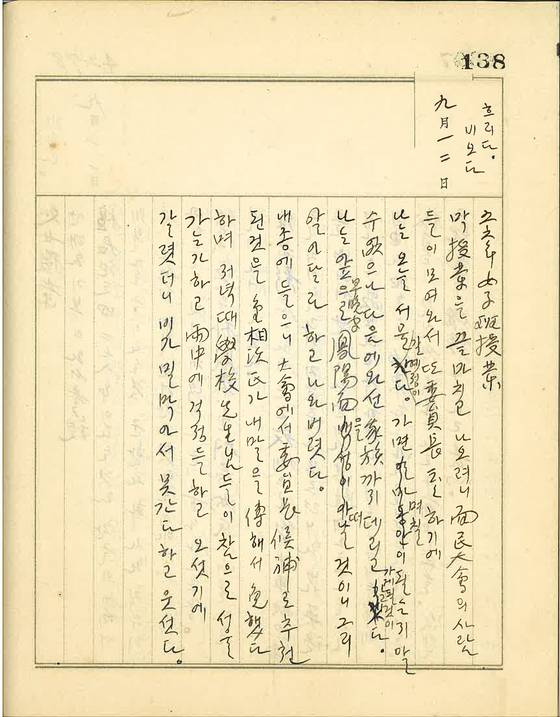 138
흐리다.
비오다
九月一二日
五六年 女子班 授業
막 授業을 끝마치고 나오려니 面民大會의 사람
들이 모여와서 또 委員長 하기에
나는 오늘 서울 갈 예정이다. 가면 며칠 될는지 알
수 없으나 다음에 와선 家族까지 데리고 가게 될 것이다.
나는 앞으로 早晩間 鳳陽面을 떠날 것이니 그리
알아달라 하고 나와버렸다.
내종에 들으니 大會에서 委員長 候補로 추천
된 것을 金相次氏가 내 말을 傳해서 免했다
하며 저녁때 學校 先生님들이 참으로 섭섭
하고 雨中에 걱정들 하고 오셨기에
갈렸더니 비가 밀막아서 못 간다 하고 웃었다.